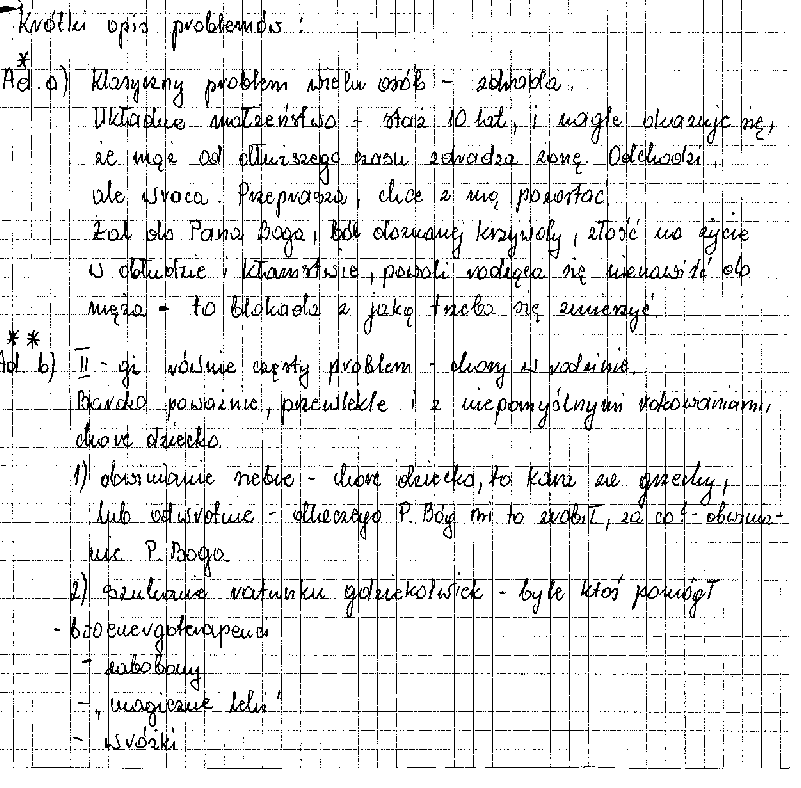 Krótki opis problemów :
*
Ad. a) Klasyczny problem wielu osób - zdrada.
Układne małżeństwo - staż 10 lat, i nagle okazuje się,
że mąż od dłuższego czasu zdradza żonę. Odchodzi,
ale wraca. Przeprasza, chce z nią pozostać.
Żal do Pana Boga, ból doznanej krzywdy, złość na życie
w obłudzie i kłamstwie, powoli rodząca się nienawiść do
męża - to blokada z jaką trzeba się zmierzyć
* *
Ad. b) II-gi równie częsty problem - chory w rodzinie.
Bardzo poważnie, przewlekle i z niepomyślnymi rokowaniami,
chore dziecko
1) obwinianie siebie - chore dziecko, to kara za grzechy,
lub odwrotnie - dlaczego P. Bóg mi to zrobił, za co? - obwinia-
nie P. Boga
2) szukanie ratunku gdziekolwiek - byle ktoś pomógł
- bioenergoterapeuci
- zabobony
- "magiczne leki"
- wróżki